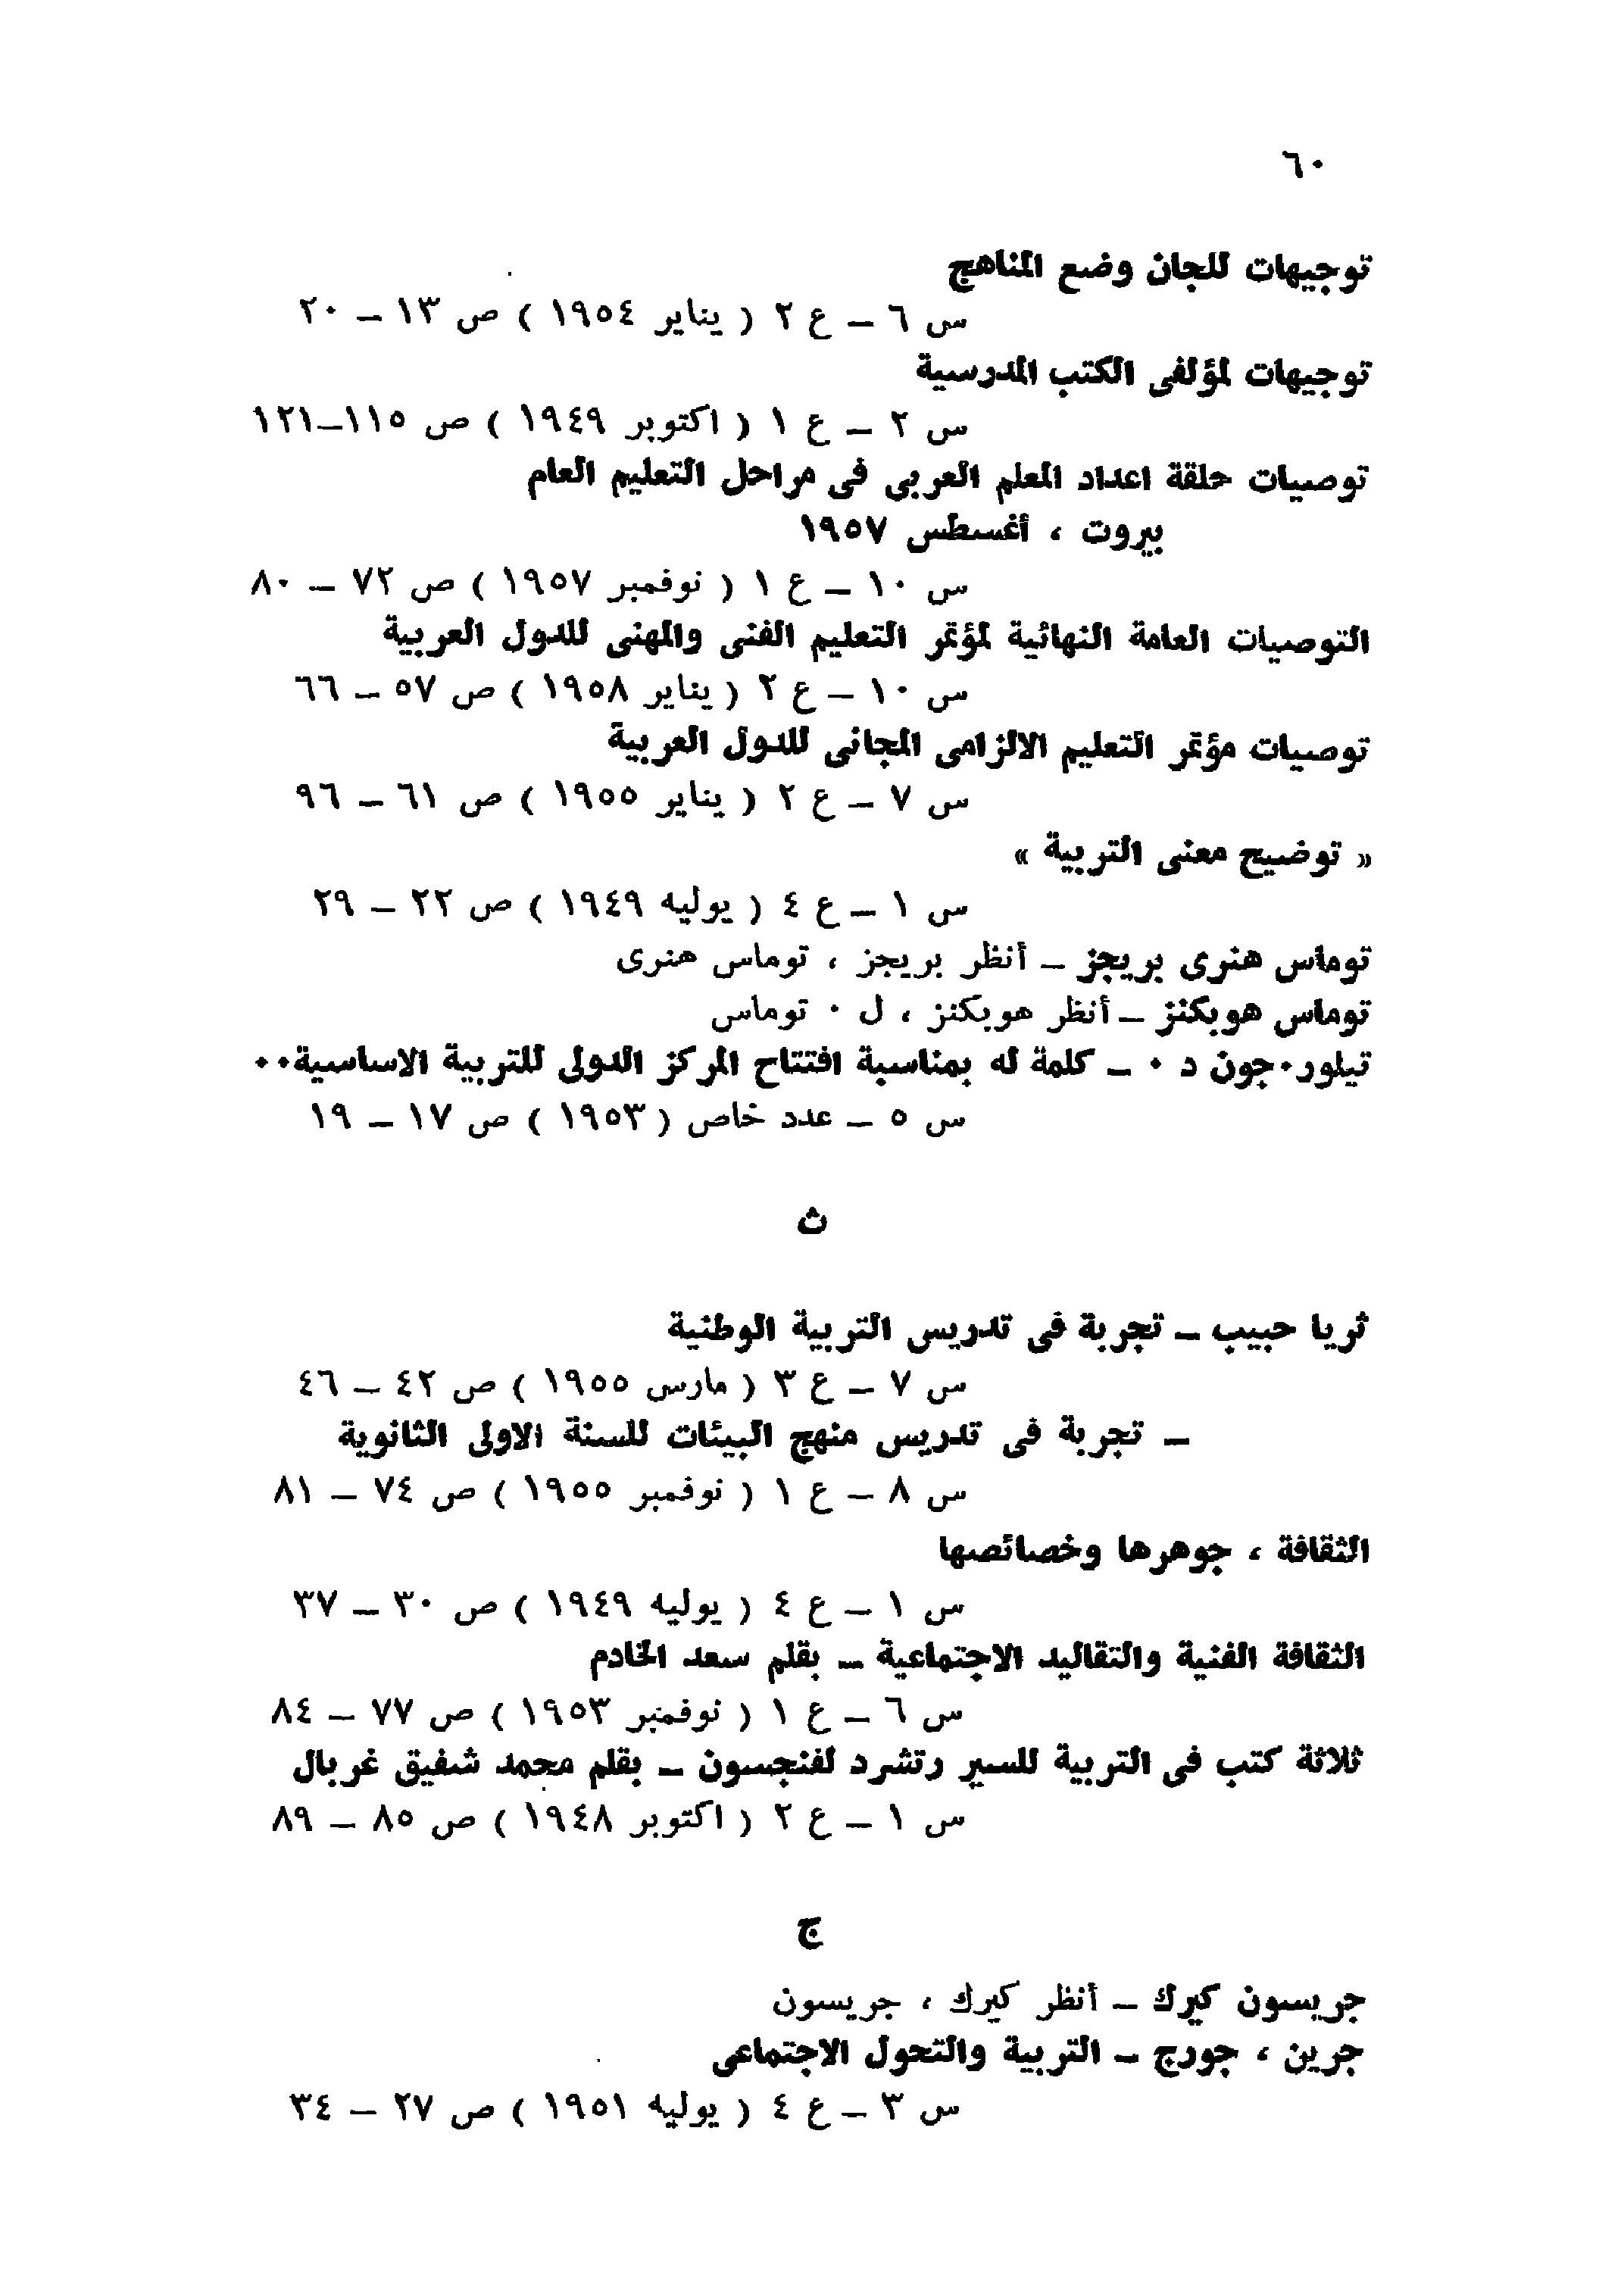 ٦٠
توجيهات للجان وضع المناهج
س ٦ – ع ٢ ( يناير ١٩٥٤ ) ص ١٣ – ٢٠
توجيهات لمؤلفى الكتب المدرسية
س ٢ – ع ١ ( اكتوبر ١٩٤٩ ) ص ١١٥–١٢١
توصيات حلقة اعداد المعلم العربى فى مراحل التعليم العام
بيروت ، أغسطس ١٩٥٧
س ١٠ – ع ١ ( نوفمبر ١٩٥٧ ) ص ٧٢ – ٨٠
التوصيات العامة النهائية لمؤتمر التعليم الفنى والمهنى للدول العربية
س ١٠ – ع ٢ ( يناير ١٩٥٨ ) ص ٥٧ – ٦٦
توصيات مؤتمر التعليم الالزامى المجانى للدول العربية
س ٧ – ع ٢ ( يناير ١٩٥٥ ) ص ٦١ – ٩٦
« توضيح معنى التربية »
س ١ – ع ٤ ( يوليه ١٩٤٩ ) ص ٢٢ – ٢٩
توماس هنرى بريجز – أنظر بريجز ، توماس هنرى
توماس هوبكنز – أنظر هوبكنز ، ل ٠ توماس
تيلور٠جون د ٠ – كلمة له بمناسبة افتتاح المركز الدولى للتربية الاساسية٠٠
س ٥ – عدد خاص ( ١٩٥٣ ) ص ١٧ – ١٩
ث
ثريا حبيب – تجربة فى تدريس التربية الوطنية
س ٧ – ع ٣ ( مارس ١٩٥٥ ) ص ٤٢ – ٤٦
– تجربة فى تدريس منهج البيئات للسنة الاولى الثانوية
س ٨ – ع ١ ( نوفمبر ١٩٥٥ ) ص ٧٤ – ٨١
الثقافة ، جوهرها وخصائصها
س ١ – ع ٤ ( يوليه ١٩٤٩ ) ص ٣٠ – ٣٧
الثقافة الفنية والتقاليد الاجتماعية – بقلم سعد الخادم
س ٦ – ع ١ ( نوفمبر ١٩٥٣ ) ص ٧٧ – ٨٤
ثلاثة كتب فى التربية للسير رتشرد لفنجسون – بقلم محمد شفيق غربال
س ١ – ع ٢ ( اكتوبر ١٩٤٨ ) ص ٨٥ – ٨٩
ج
جريسون كيرك – أنظر كيرك ، جريسون
جرين ، جورج – التربية والتحول الاجتماعى
س ٣ – ع ٤ ( يوليه ١٩٥١ ) ص ٢٧ – ٣٤